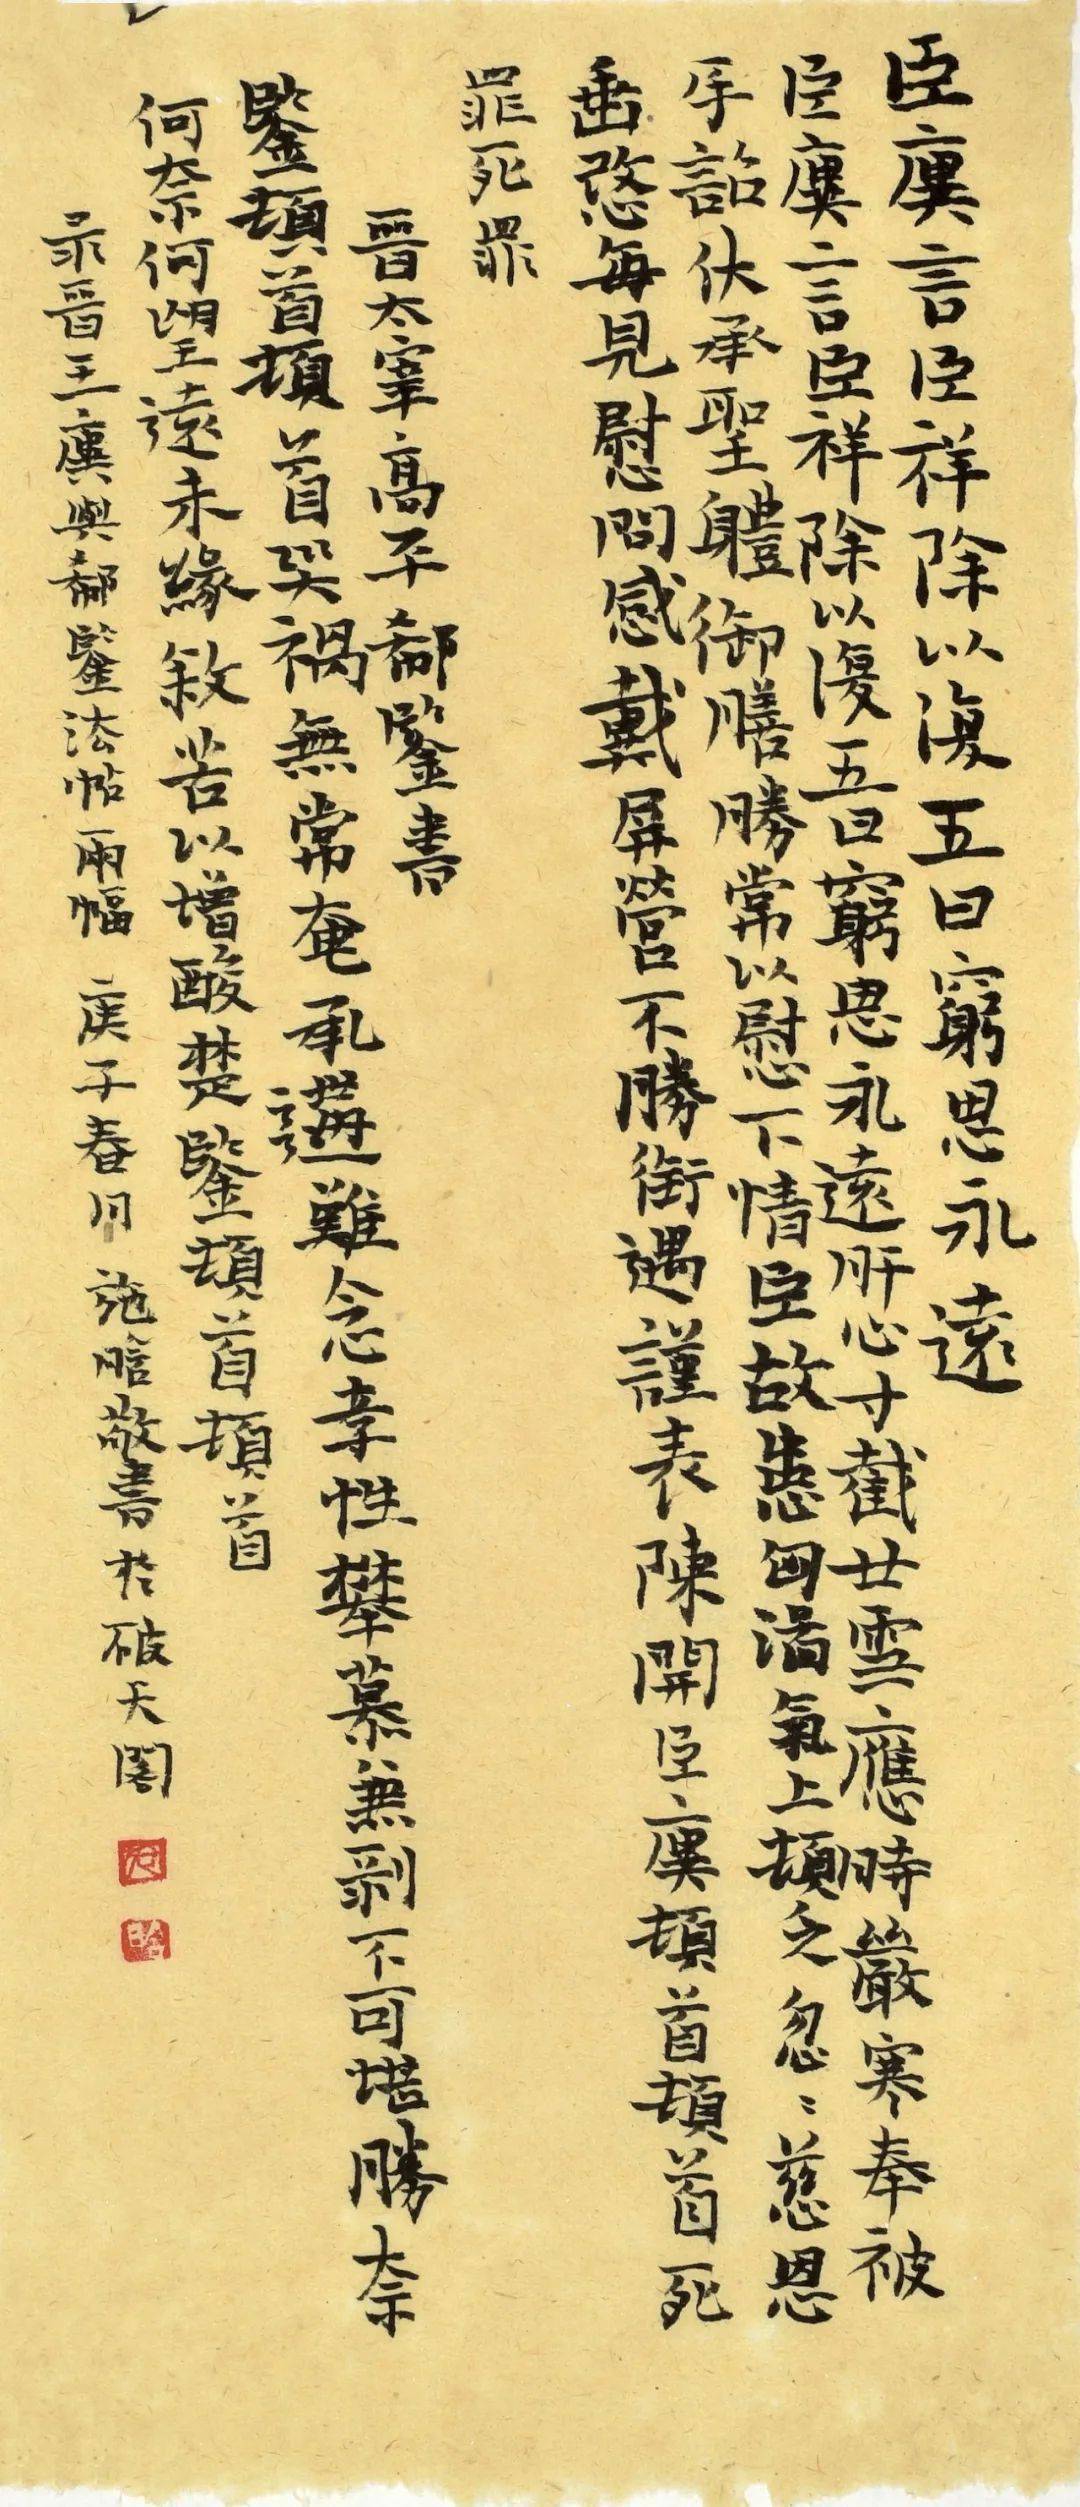 臣廙言臣祥除以復五日窮思永遠
臣廙言臣祥除以復五日窮思永遠肝心寸截甘雪應時嚴寒奉被
手詔伏承聖體御膳勝常以慰下情臣故患匈滿氣上頓乏忽〻慈恩
垂愍每見慰問感戴屏營不勝銜遇謹表陳聞臣廙頓首頓首死
罪死罪
晉太宰高平郗鑒書
鑒頓首頓首哭禍無常奄承遘難念孝性攀慕兼剝不可堪勝奈
何奈何望遠未緣敘苦以增酸楚鑒頓首頓首
录晉王廙與郗鑒法帖兩幅 庚子春月 施晗敬書於破天閣